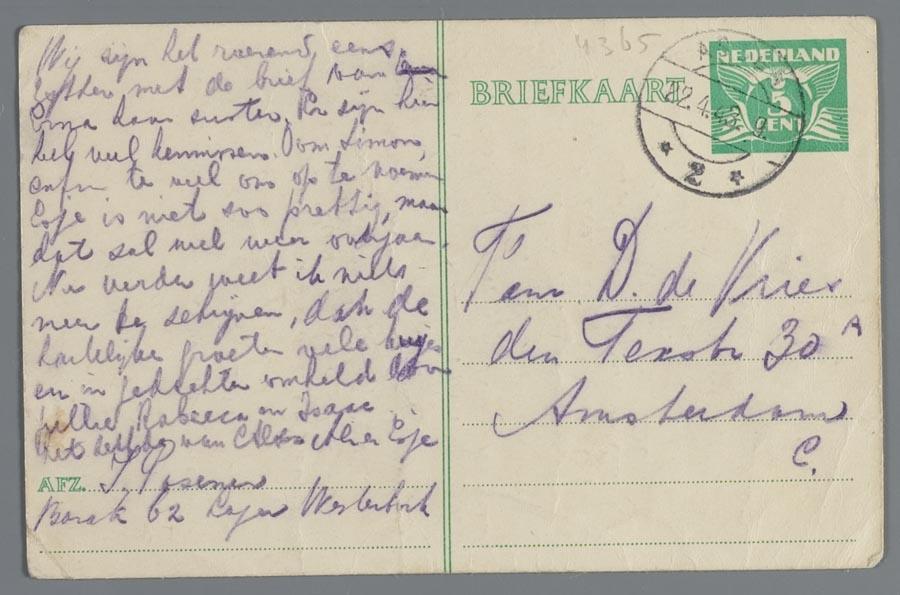 Wij zijn het roerend eens
Esther met de brief van
Erna haar zuster. Er zijn hier
heel veel kennissen. Oom Simon,
enfin te veel om op te noemen
Esje is niet zoo prettig, maar
dat zal wel weer overgaan.
Nu verder weet ik niets
meer te schrijven, dan de
hartelijke groeten vele kusjes
en in gedachten omhelsd door
jullie Rebecca en Isaac
Het beste van Alex Esje
AFZ. I.
Barak 62 Lager Westerbork
4365
BRIEFKAART
NEDERLAND
5
CENT
22.4.43
2
Fam D. de Vries
den Texstr 30 A
Amsterdam
C.